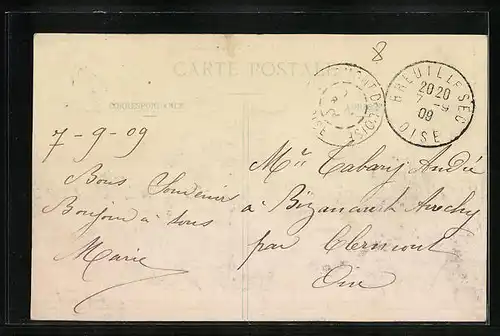 8
CARTE POSTALE
CORRESPONDANCE
BREUIL-LE-SEC
20 20
7 -9
09
OISE
7-9-09
Bons Souvenirs
Bonjour à tous
Marie
Mr Tabary André
à
par Clermont
Oise